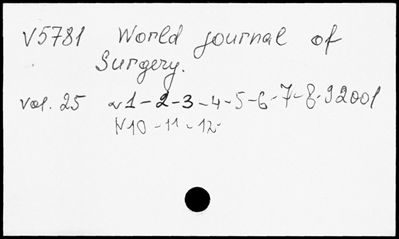 V5781 World journal of
Surgery.
vol. 25 N1-2-3-4-5-6-7-8-9 2001
N10-11-12-